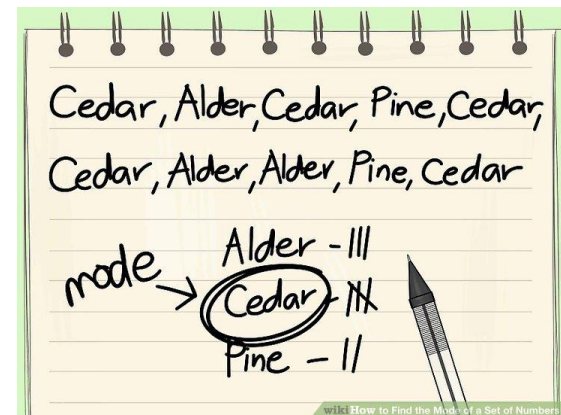 Cedar, Alder, Cedar, Pine, Cedar,
Cedar, Alder, Alder, Pine, Cedar
Alder - |||
mode → Cedar - 卌
Pine - ||
wikiHow to Find the Mode of a Set of Numbers